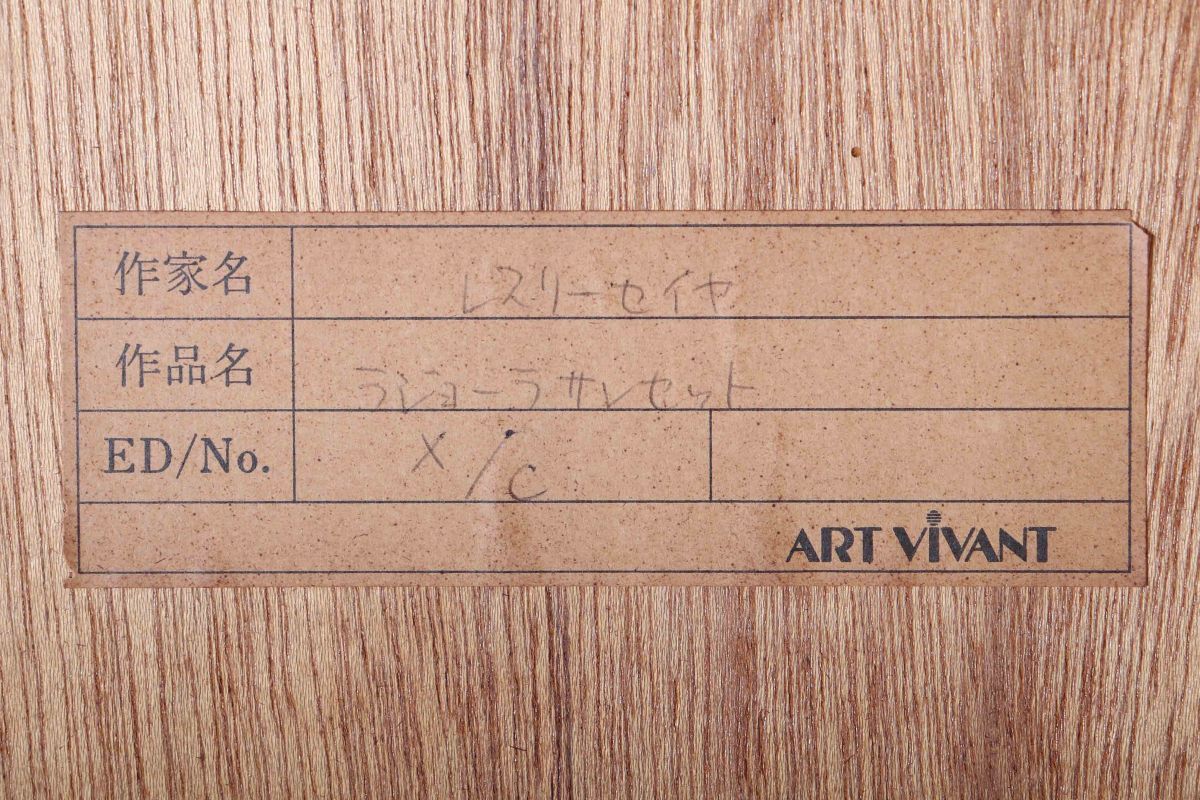 作家名 レスリーセイヤ
作品名 ラジョーラサンセット
ED/No. X/C
ART ViVANT